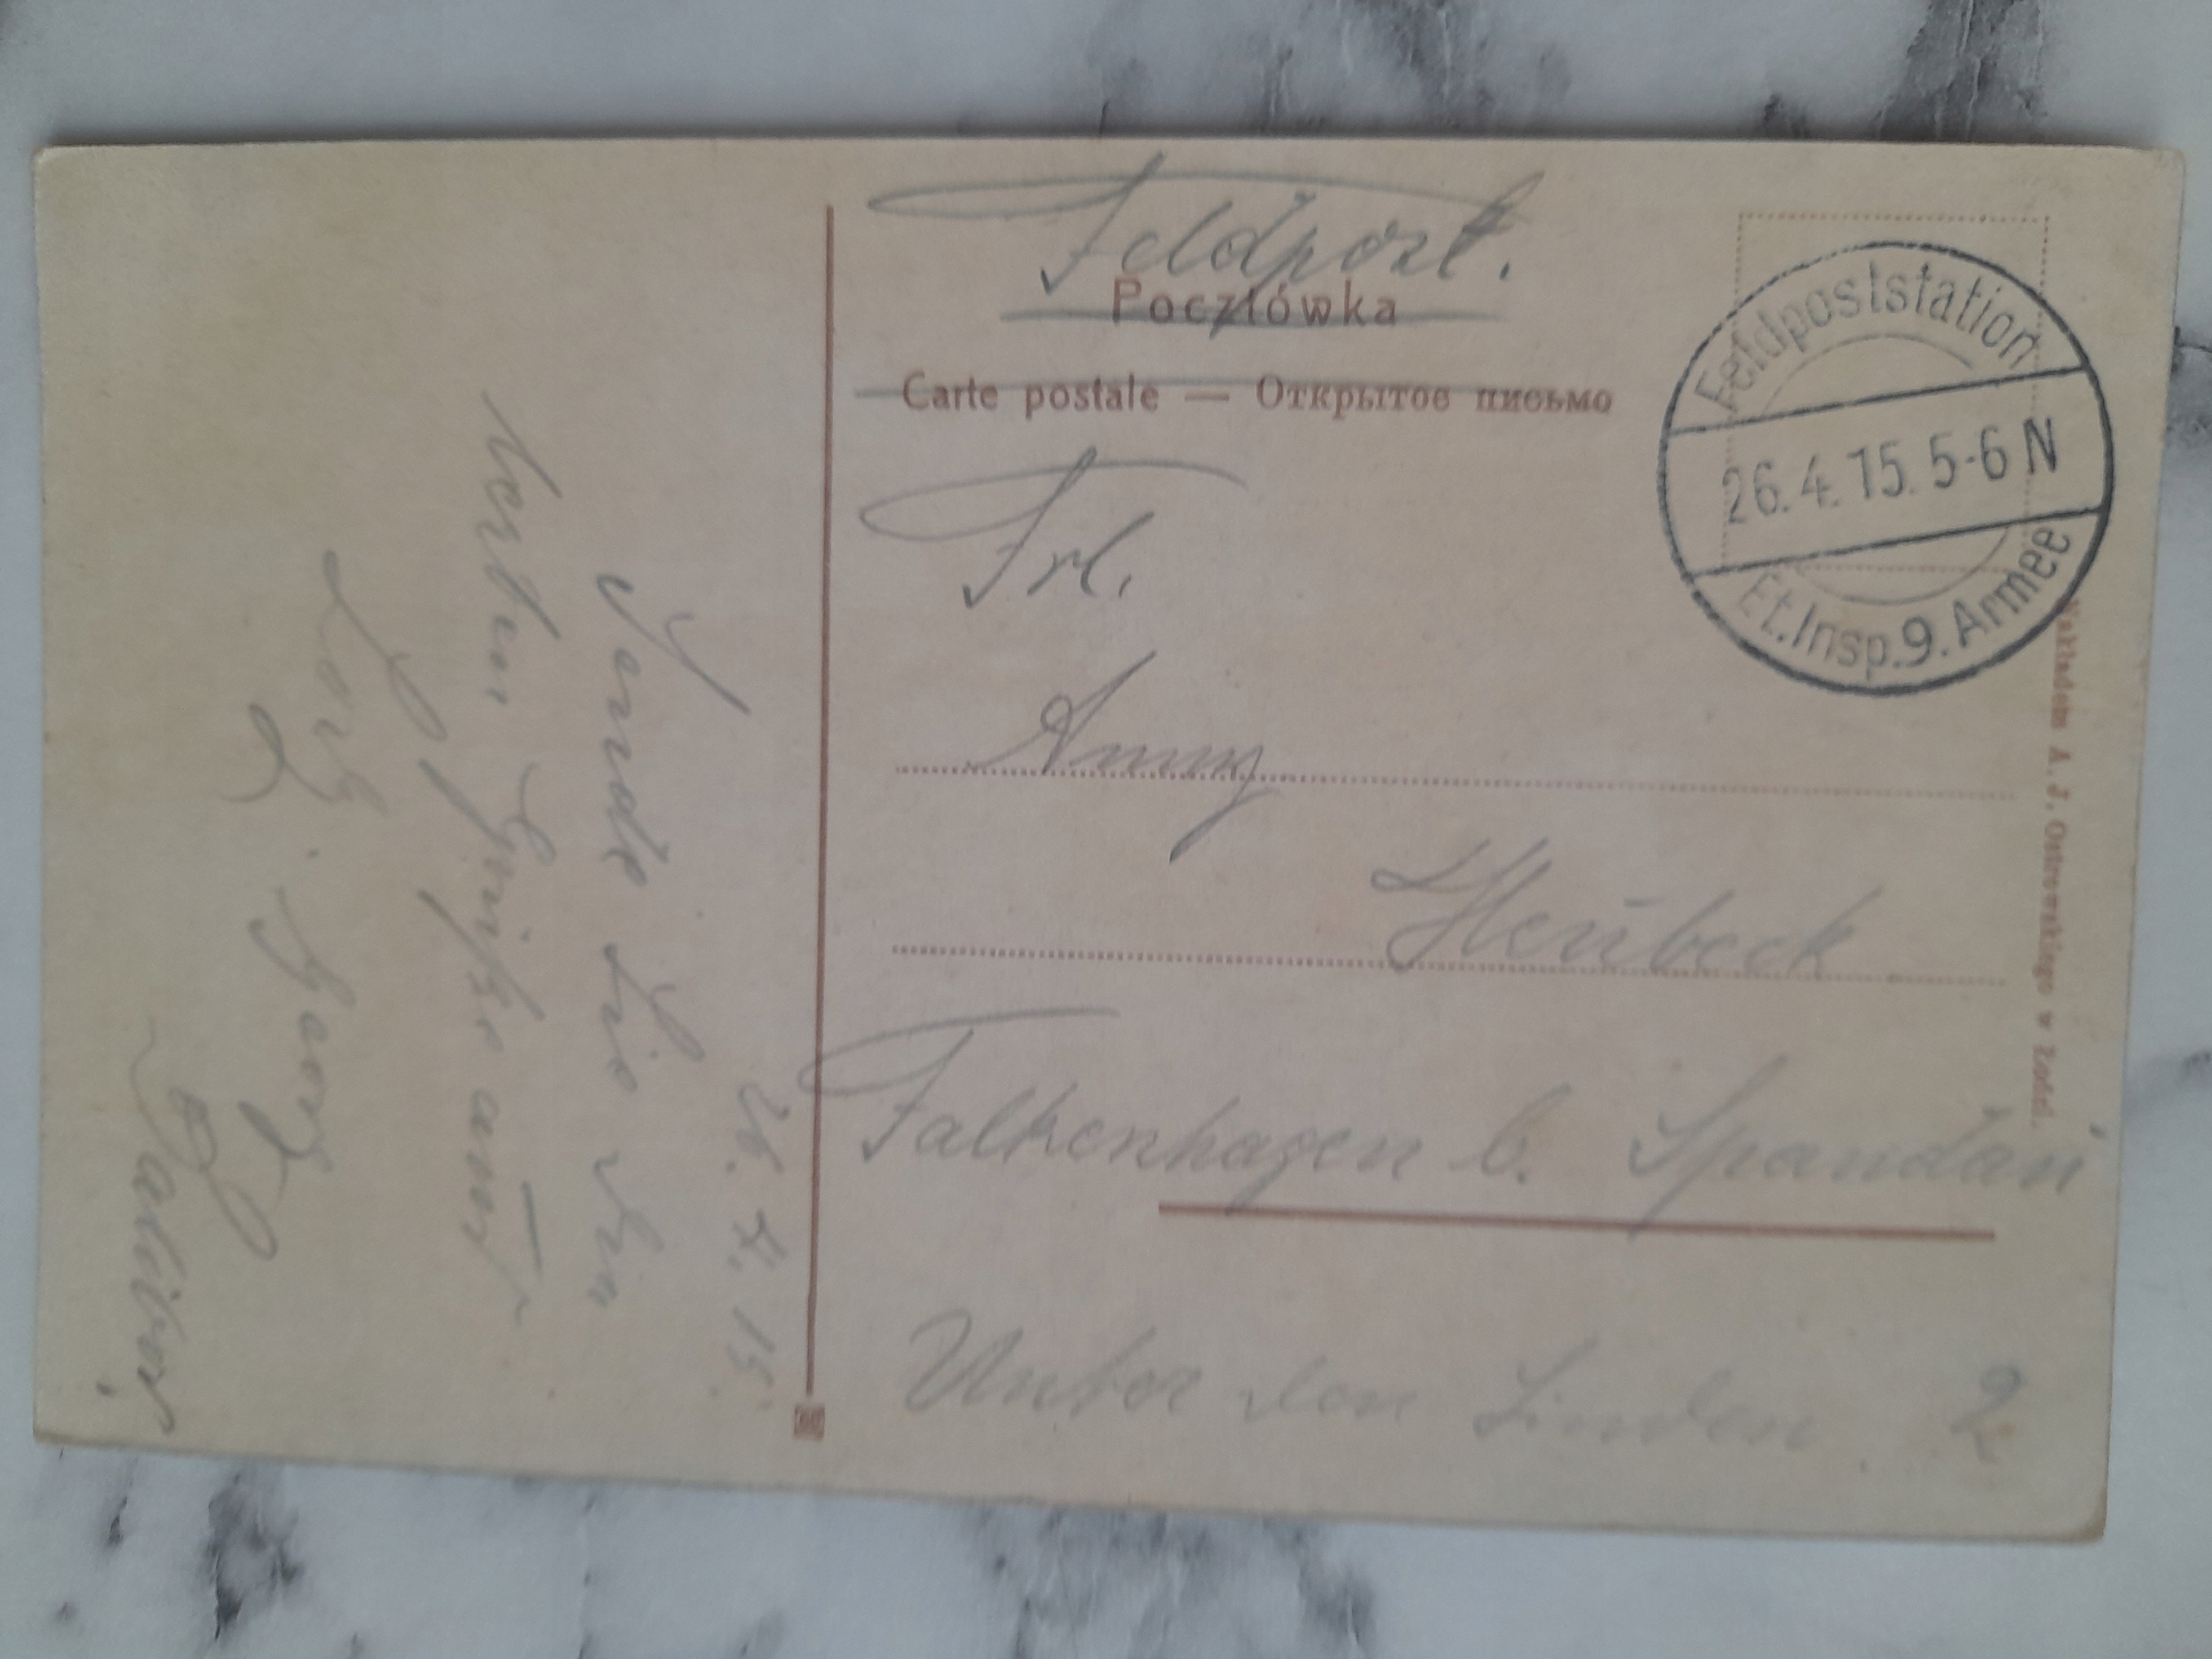 Feldpost.
Pocztówka
Carte postale — Открытое письмо
Feldpoststation
26.4.15. 5-6 N
Et.Insp.9.Armee
Frl.
Anny
Heubeck
Falkenhagen b. Spandau
Unter den Linden 2
Nakładem A. J. Ostrowskiego w Łodzi.
26. 4. 15.
Sende Sie die
herten Grüße aus
Lodz. Georg